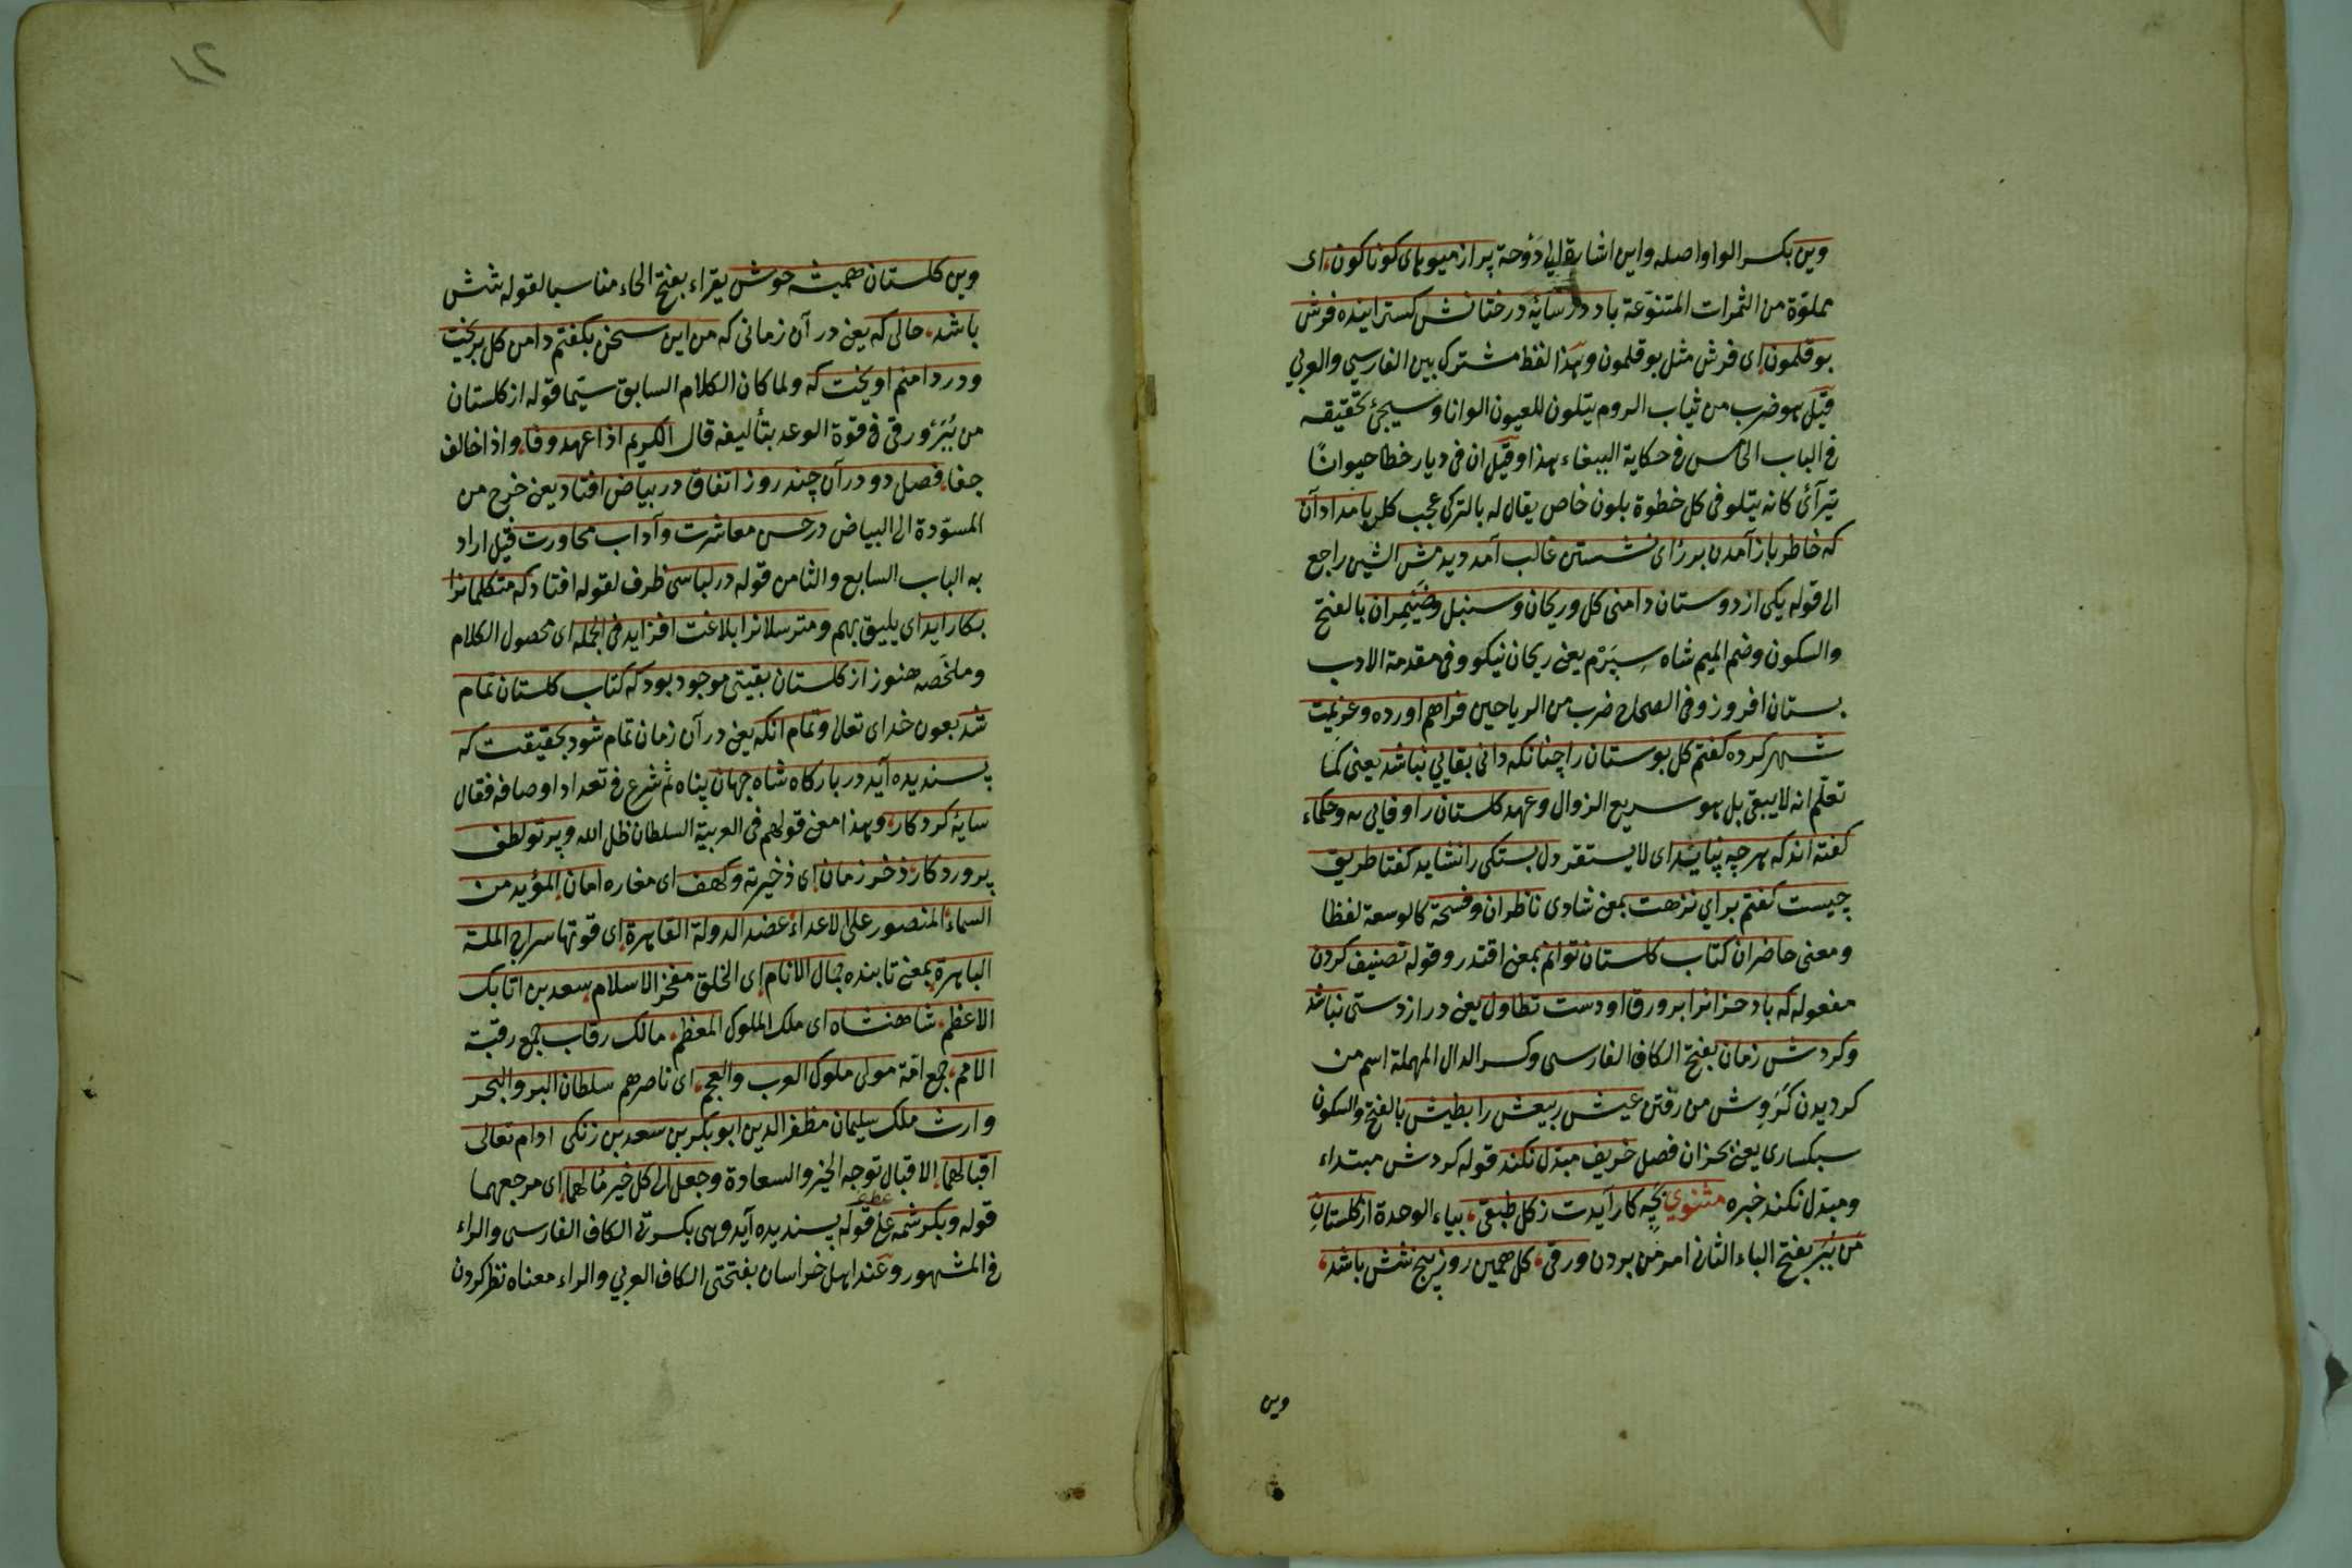 وین بكسر الواو اصله واین اشارة الی دوحة پر از میوهای کوناکون ای
مملوّة من الثمرات المتنوّعة باد در سایهٔ درختانش کسترانیده فرش
بوقلمون ای فرش مثل بوقلمون وهذا لفظ مشترک بین الفارسي والعربي
قیل هو ضرب من ثیاب الروم یتلون للعیون الوانا وسیجئ تحقیقه
فی الباب الخامس فی حکایة الببغاء هذا وقیل ان فی دیار خطا حیوانًا
یترآئ کانه یتلو فی کل خطوة بلون خاص یقال له بالترکی بامدادان
که خاطر باز آمدن بر رٔای نشستن غالب آمد دیدمش الشین راجع
الی قوله یکی از دوستان دامنی کل وریحان وسنبل وضَیمِران بالفتح
والسکون وضم المیم شاه سِپَرَم یعنی ریحان نیکو وفی مقدمة الادب
بستان افروز وفی الصحاح ضرب من الریاحین فراهم اورده وعزیمت
شهر کرده کفتم کل بوستان را چنانکه دانی بقایی نباشد یعنی کما
تعلم انه لا یبقی بل هو سریع الزوال وعهد کلستان را وفایی نه وحکماء
کفته اند که هرچه نپاید ای لا یستقر دل بستکی را نشاید کفتا طریق
چیست کفتم برای نزهت بمعنی شادی ناظران وفسحة کالوسعة لفظا
ومعنی حاضران کتاب کلستان توانم بمعنی اقتدر وقوله تصنیف کردن
مفعوله که باد خزانرا بر ورق او دست تطاول یعنی دراز دستی نباشد
وکردش زمان بفتح الکاف الفارسی وکسر الدال المهملة اسم من
کردیدن کرَوِش من رفتن عیش ربیعش را بطیش بالفتح والسکون
سبکساری یعنی بخزان فصل خریف مبدّل نکند قوله کردش مبتداء
ومبدّل نکند خبره مثنوي بچه کار آیدت ز کل طبقی بیاء الوحدة از کلستانِ
من بَبَر بفتح الباء الثانی امر من بردن ورقی کل همین روز پنج شش باشد
وین
۱۲
وین کلستان همیشه خوش یقراء بفتح الخاء مناسبا لقوله شش
باشد حالی که یعنی در آن زمانی که من این سخن بکفتم دامن کل بریخت
ودر دامنم اویخت که ولما کان الکلام السابق سیّما قوله از کلستان
من ببر ورقی فی قوة الوعد بتألیفه قال الکریم اذا عهد وفا واذا خالف
جفا فصل دو در آن چند روز اتفاق در بیاض افتاد یعنی خرج من
المسوّدة الی البیاض در حسن معاشرت وآداب محاورت قیل اراد
به الباب السابع والثامن قوله در لباسی ظرف لقوله افتاد که متکلمانرا
بکار اید ای یلیق بهم ومترسلانرا بلاغت افزاید فی الجمله ای محصول الکلام
وملخّصه هنوز از کلستان بقیتی موجود بود که کتاب کلستان تمام
شد بعون خدای تعالی وتمام انکه یعنی در آن زمان تمام شود بحقیقت که
پسندیده آید در بارکاه شاه جهان پناه ثم شرع فی تعداد اوصافه فقال
سایهٔ کردکار وهذا معنی قولهم فی العربیة السلطان ظل الله وپرتو لطف
پروردکار ذخر زمان ای ذخیرته وکهف ای مغاره امان المؤید من
السماء المنصور علی الاعداء عضد الدولة القاهرة ای قوتها سراج الملة
الباهرة بمعنی تابنده جمال الانام ای الخلق مفخر الاسلام سعد بن اتابک
الاعظم شاهنشاه ای ملک الملوک المعظم مالک رقاب جمع رقبة
الامم جمع امّة مولی ملوک العرب والعجم ای ناصرهم سلطان البر والبحر
وارث ملک سلیمان مظفر الدین ابو بکر بن سعد بن زنکی ادام تعالی
اقبالهما الاقبال توجه الخیر والسعادة وجعل الی کل خیر مٔالهما ای مرجعهما
عطف
قوله وبکرشمه علی قوله پسندیده آید وهی بکسرتی الکاف الفارسی والراء
فی المشهور وعند اهل خراسان بفتحتی الکاف العربي والراء معناه نظر کردن